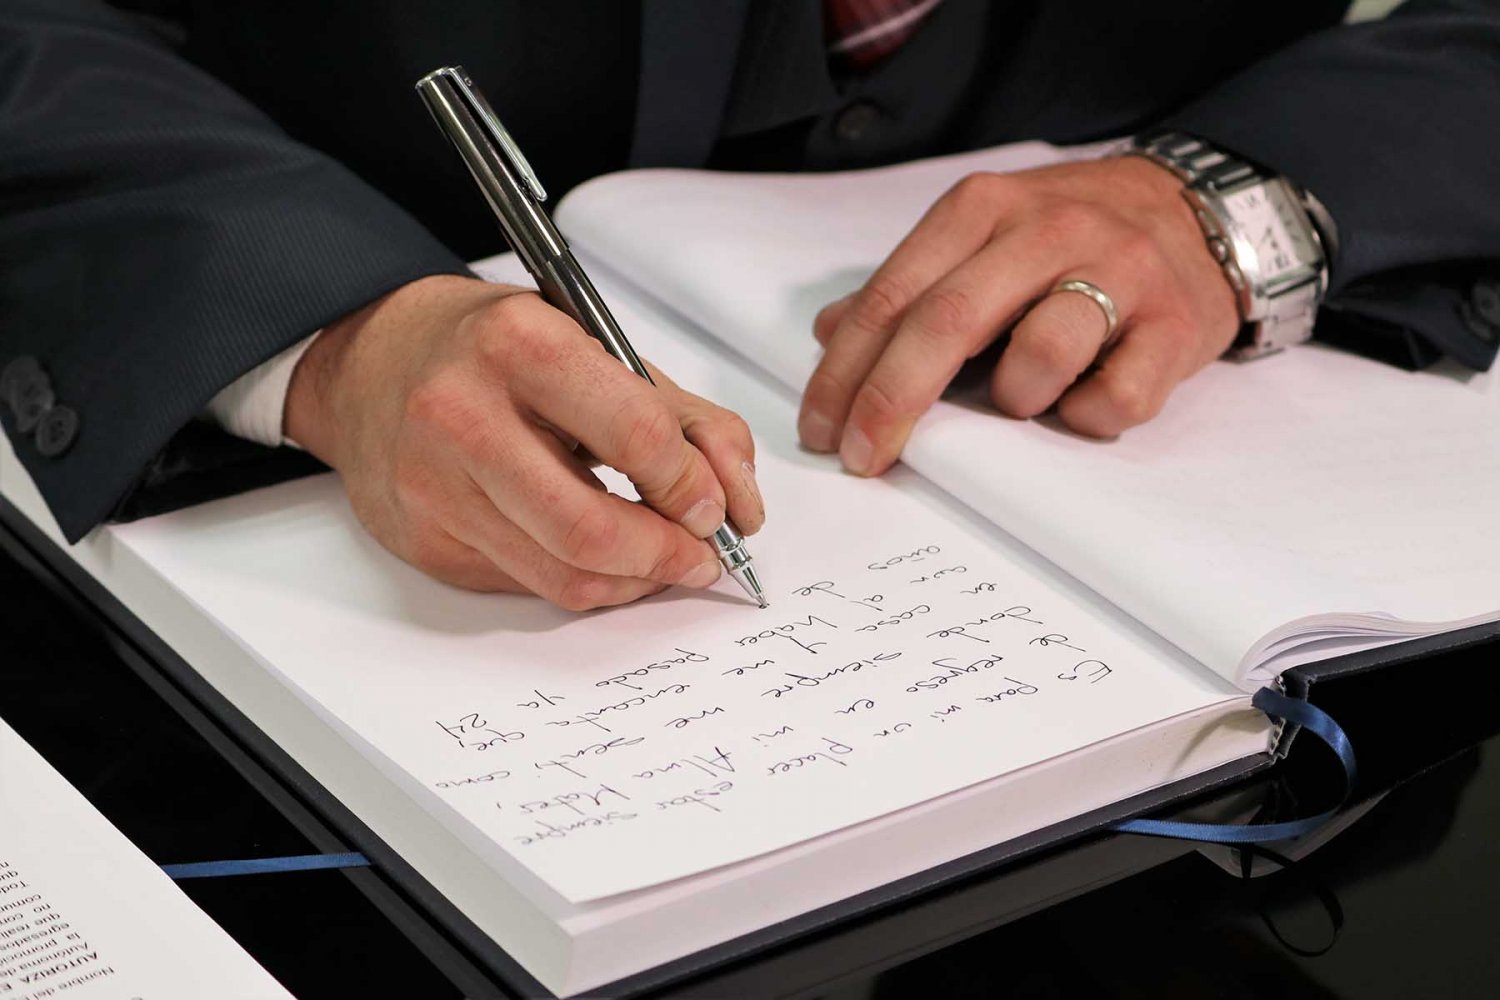 Es para mi un placer estar siempre
de regreso en mi Alma Mater,
donde siempre me sentí como
en casa y me encanta que,
aun a haber pasado ya 24
años de
Nombre del
AUTORIZA E
Autónoma de
la promoció
egresados
que reali
no cor
comun
Todo
qu